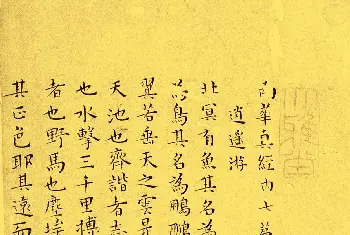 南華真經內七篇
逍遙游
北冥有魚其名為
為鳥其名為鵬鵬
翼若垂天之雲是
天池也齊諧者志
也水擊三千里摶
者也野馬也塵埃
其正色耶其遠而